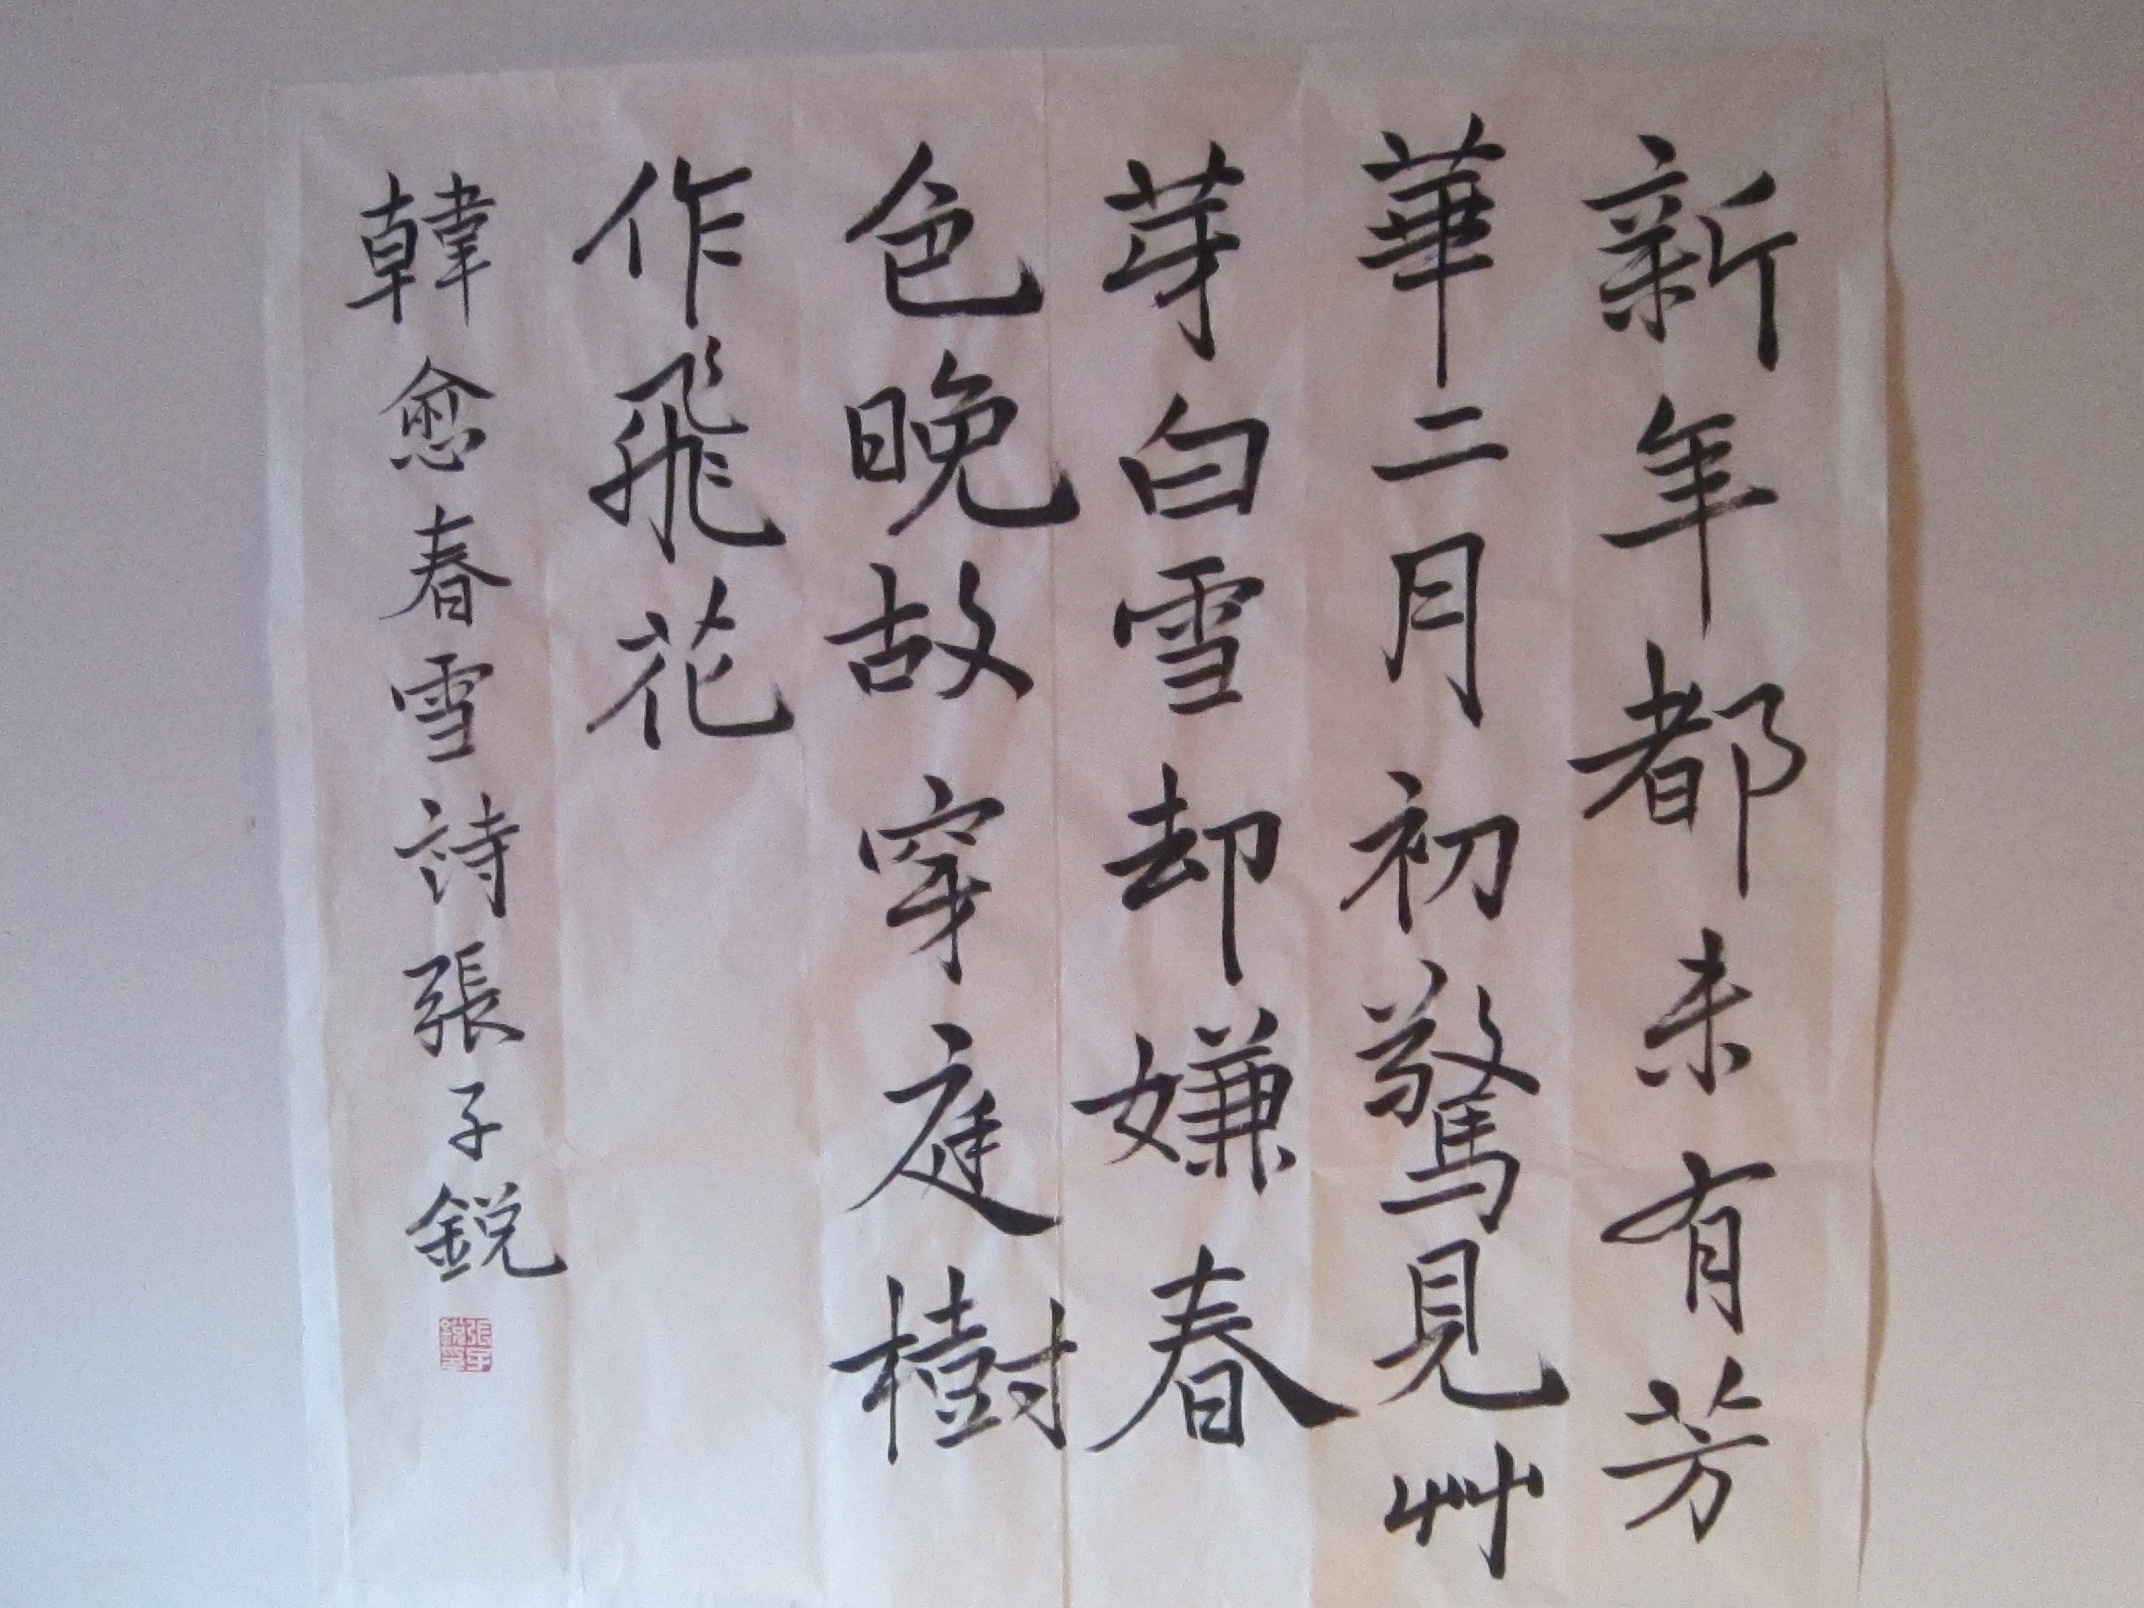 新年都未有芳
華二月初驚見艸
芽白雪却嫌春
色晚故穿庭樹
作飛花
韓愈春雪詩張子銳